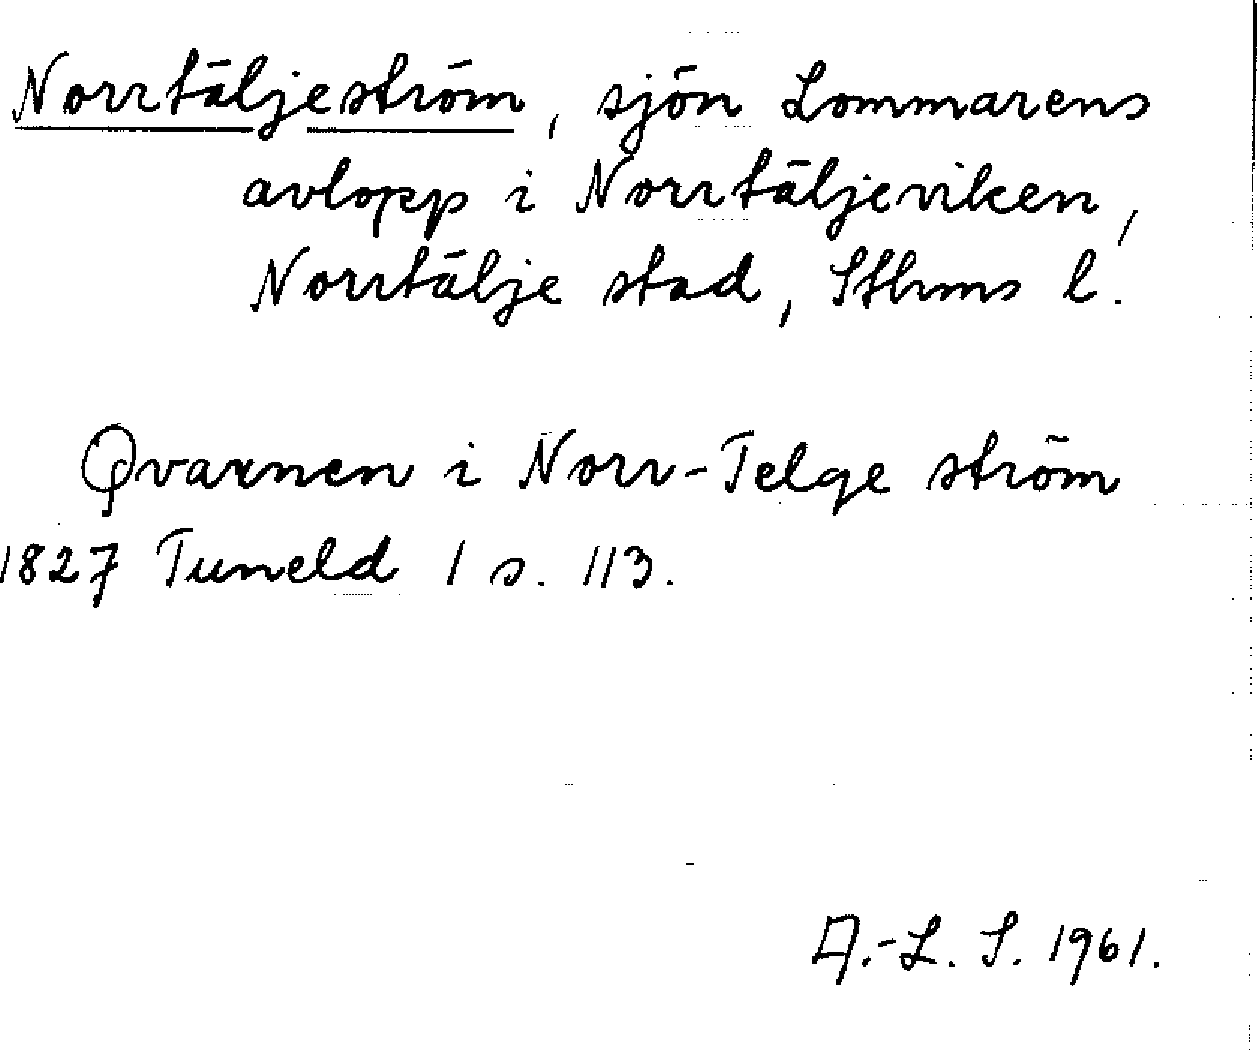 Norrtäljeström, sjön Lommarens
avlopp i Norrtäljeviken,
Norrtälje stad, Sthms l.
Qvarnen i Norr-Telge ström
1827 Tuneld 1 s. 113.
A.-L. S. 1961.